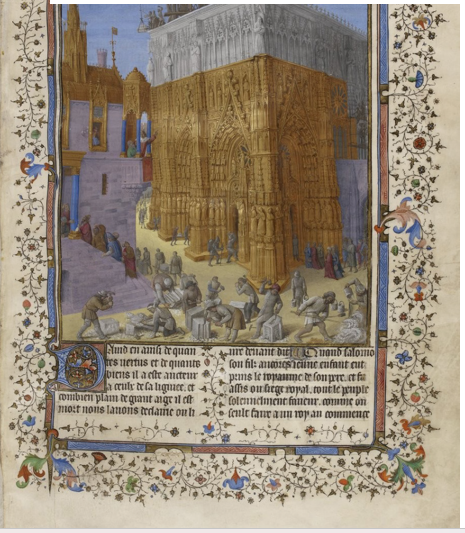 David en ainsi de quan
tes vertus et de quants
biens il a este aucteur
a ceulx de sa lignee, et
combien plain de grant aage il est
mort nous lavons declairie ou li
ure deuant dit Quand salomo
son filz ancores ieune enfant eut
prins le royaume de son pere, et fu
assis ou siege royal, tout le peuple
solennelment faueur, comme on
seult faire a un roy au commence